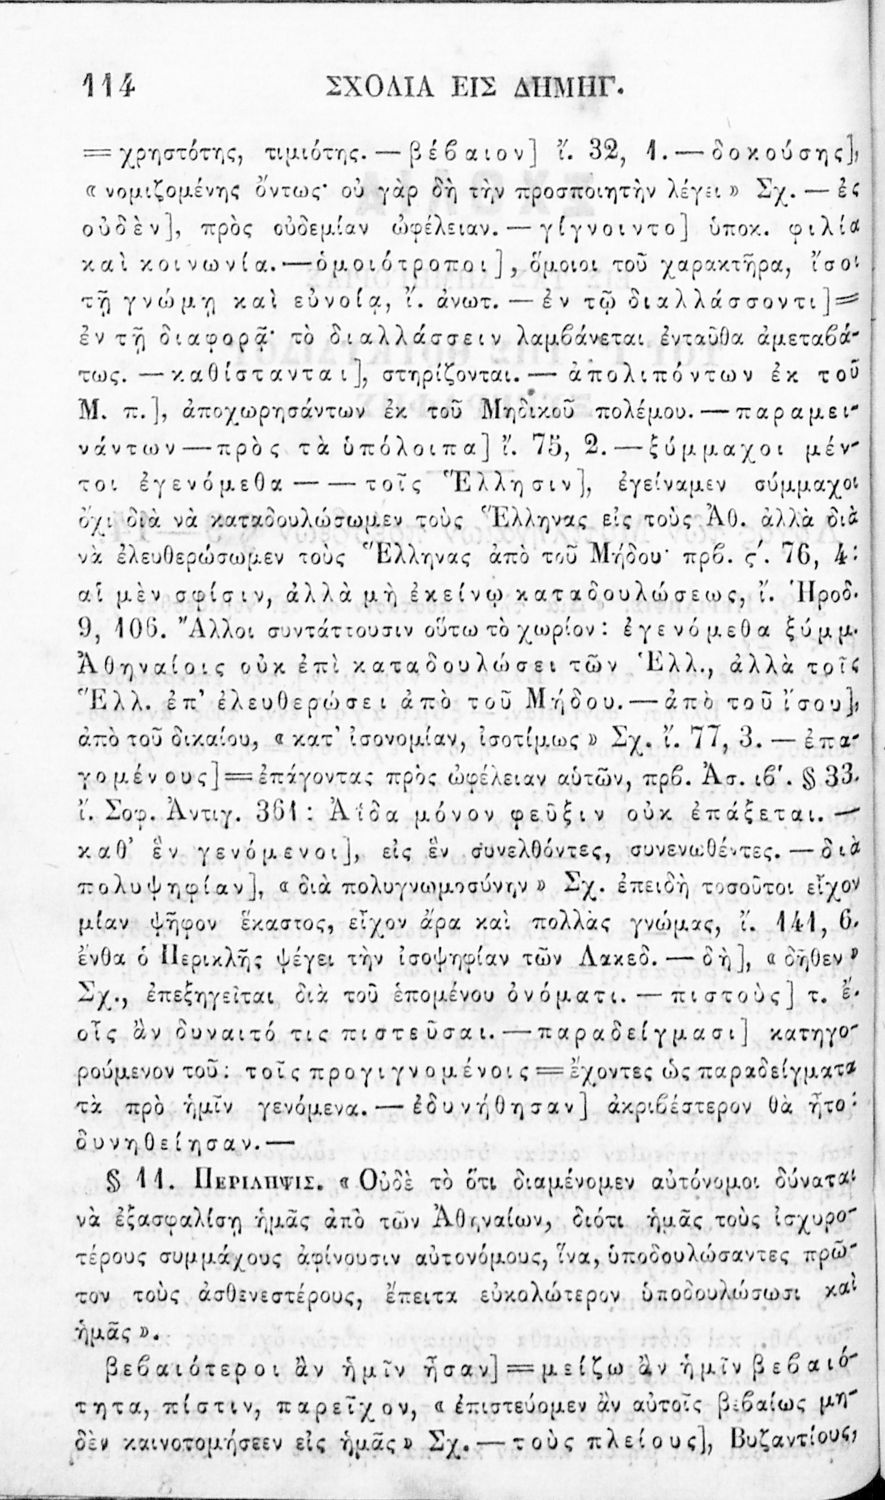 114 ΣΧΟΛΙΑ ΕΙΣ ΔΗΜΗΓ.
= χρηστότης, τιμιότης. — βέβαιον] ἴ. 32, 1. — δοκούσης],
« νομιζομένης ὄντως· οὐ γὰρ δὴ τὴν προσποιητὴν λέγει » Σχ. — ἐς
οὐδὲν], πρὸς οὐδεμίαν ὠφέλειαν. — γίγνοιντο] ὑποκ. φιλία
καὶ κοινωνία. — ὁμοιότροποι], ὅμοιοι τοῦ χαρακτῆρα, ἴσοι
τῇ γνώμῃ καὶ εὐνοίᾳ, ἴ. ἀνωτ. — ἐν τῷ διαλλάσσοντι] =
ἐν τῇ διαφορᾷ· τὸ διαλλάσσειν λαμβάνεται ἐνταῦθα ἀμεταβά-
τως. — καθίστανται], στηρίζονται. — ἀπολιπόντων ἐκ τοῦ
Μ. π.], ἀποχωρησάντων ἐκ τοῦ Μηδικοῦ πολέμου. — παραμει-
νάντων — πρὸς τὰ ὑπόλοιπα] ἴ. 75, 2. — ξύμμαχοι μέν-
τοι ἐγενόμεθα — — τοῖς Ἕλλησιν], ἐγείναμεν σύμμαχοι
ὄχι διὰ νὰ καταδουλώσωμεν τοὺς Ἕλληνας εἰς τοὺς Ἀθ. ἀλλὰ διὰ
νὰ ἐλευθερώσωμεν τοὺς Ἕλληνας ἀπὸ τοῦ Μήδου· πρβ. ς΄. 76, 4:
αἱ μὲν σφίσιν, ἀλλὰ μὴ ἐκείνῳ καταδουλώσεως, ἴ. Ἡροδ.
9, 106. Ἄλλοι συντάττουσιν οὕτω τὸ χωρίον: ἐγενόμεθα ξύμμ.
Ἀθηναίοις οὐκ ἐπὶ καταδουλώσει τῶν Ἑλλ., ἀλλὰ τοῖς
Ἕλλ. ἐπ’ ἐλευθερώσει ἀπὸ τοῦ Μήδου. — ἀπὸ τοῦ ἴσου],
ἀπὸ τοῦ δικαίου, « κατ’ ἰσονομίαν, ἰσοτίμως » Σχ. ἴ. 77, 3. — ἐπα-
γομένους] = ἐπάγοντας πρὸς ὠφέλειαν αὑτῶν, πρβ. Ἀσ. ιβ΄. § 33.
ἴ. Σοφ. Ἀντιγ. 361: Ἀΐδα μόνον φεῦξιν οὐκ ἐπάξεται. —
καθ’ ἓν γενόμενοι], εἰς ἓν συνελθόντες, συνενωθέντες. — διὰ
πολυψηφίαν], « διὰ πολυγνωμοσύνην » Σχ. ἐπειδὴ τοσοῦτοι εἶχον
μίαν ψῆφον ἕκαστος, εἶχον ἄρα καὶ πολλὰς γνώμας, ἴ. 141, 6.
ἔνθα ὁ Περικλῆς ψέγει τὴν ἰσοψηφίαν τῶν Λακεδ. — δὴ], « δῆθεν »
Σχ., ἐπεξηγεῖται διὰ τοῦ ἑπομένου ὀνόματι. — πιστοὺς] τ. ἔ.
οἷς ἂν δυναιτό τις πιστεῦσαι. — παραδείγμασι] κατηγο-
ρούμενον τοῦ: τοῖς προγιγνομένοις = ἔχοντες ὡς παραδείγματα
τὰ πρὸ ἡμῖν γενόμενα. — ἐδυνήθησαν] ἀκριβέστερον θὰ ἦτο:
δυνηθείησαν. —
§ 11. ΠΕΡΙΛΗΨΙΣ. « Οὐδὲ τὸ ὅτι διαμένομεν αὐτόνομοι δύναται
νὰ ἐξασφαλίσῃ ἡμᾶς ἀπὸ τῶν Ἀθηναίων, διότι ἡμᾶς τοὺς ἰσχυρο-
τέρους συμμάχους ἀφίνουσιν αὐτονόμους, ἵνα, ὑποδουλώσαντες πρῶ-
τον τοὺς ἀσθενεστέρους, ἔπειτα εὐκολώτερον ὑποδουλώσωσι καὶ
ἡμᾶς ».
βεβαιότεροι ἂν ἡμῖν ἦσαν] = μείζω ἂν ἡμῖν βεβαιό-
τητα, πίστιν, παρεῖχον, « ἐπιστεύομεν ἂν αὐτοῖς βεβαίως μη-
δὲν καινοτομήσεεν εἰς ἡμᾶς » Σχ. — τοὺς πλείους], Βυζαντίους,